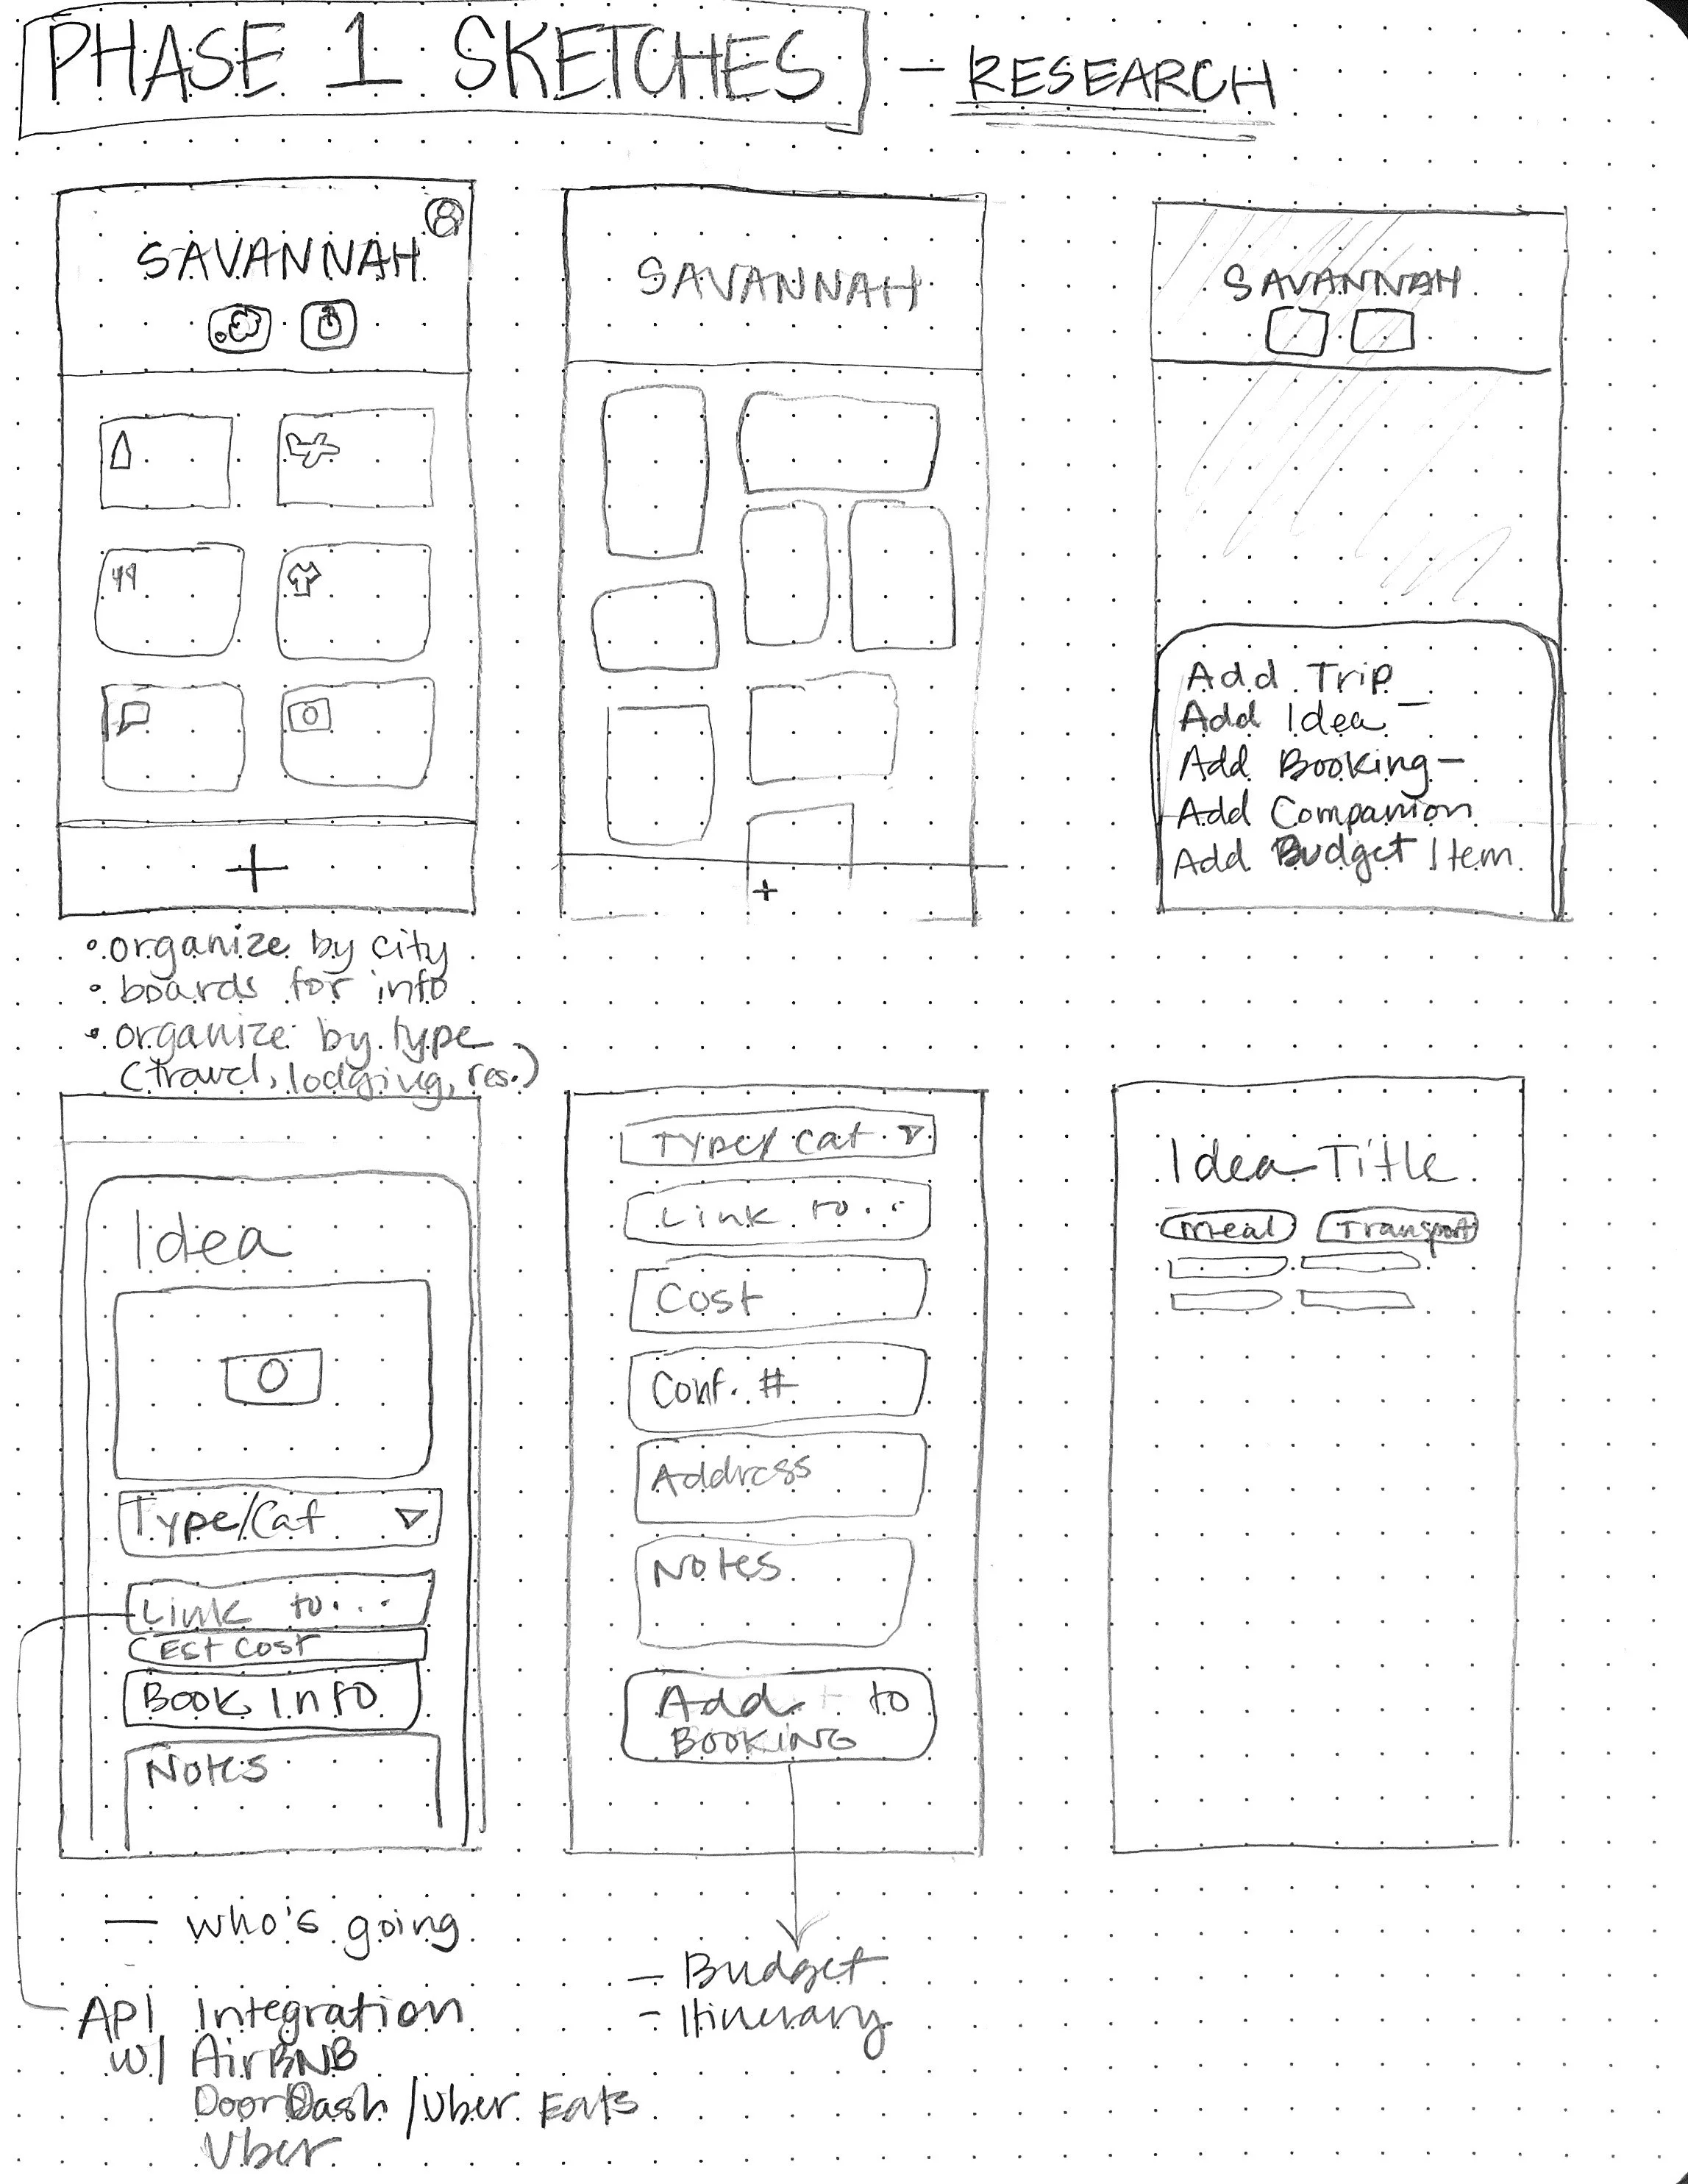 PHASE 1 SKETCHES - RESEARCH
SAVANNAH
+
SAVANNAH
+
SAVANNAH
Add Trip
Add Idea
Add Booking
Add Companion
Add Budget Item
• organize by city
• boards for info
• organize by type
(travel, lodging, res.)
Idea
Type/Cat
Link to...
Est Cost
Book Info
Notes
Type/Cat
Link to...
Cost
Conf. #
Address
Notes
Add to
Booking
Idea Title
Meal Transport
— who's going
API Integration
w/ AirBNB
DoorDash / Uber Eats
Uber
— Budget
- Itinerary